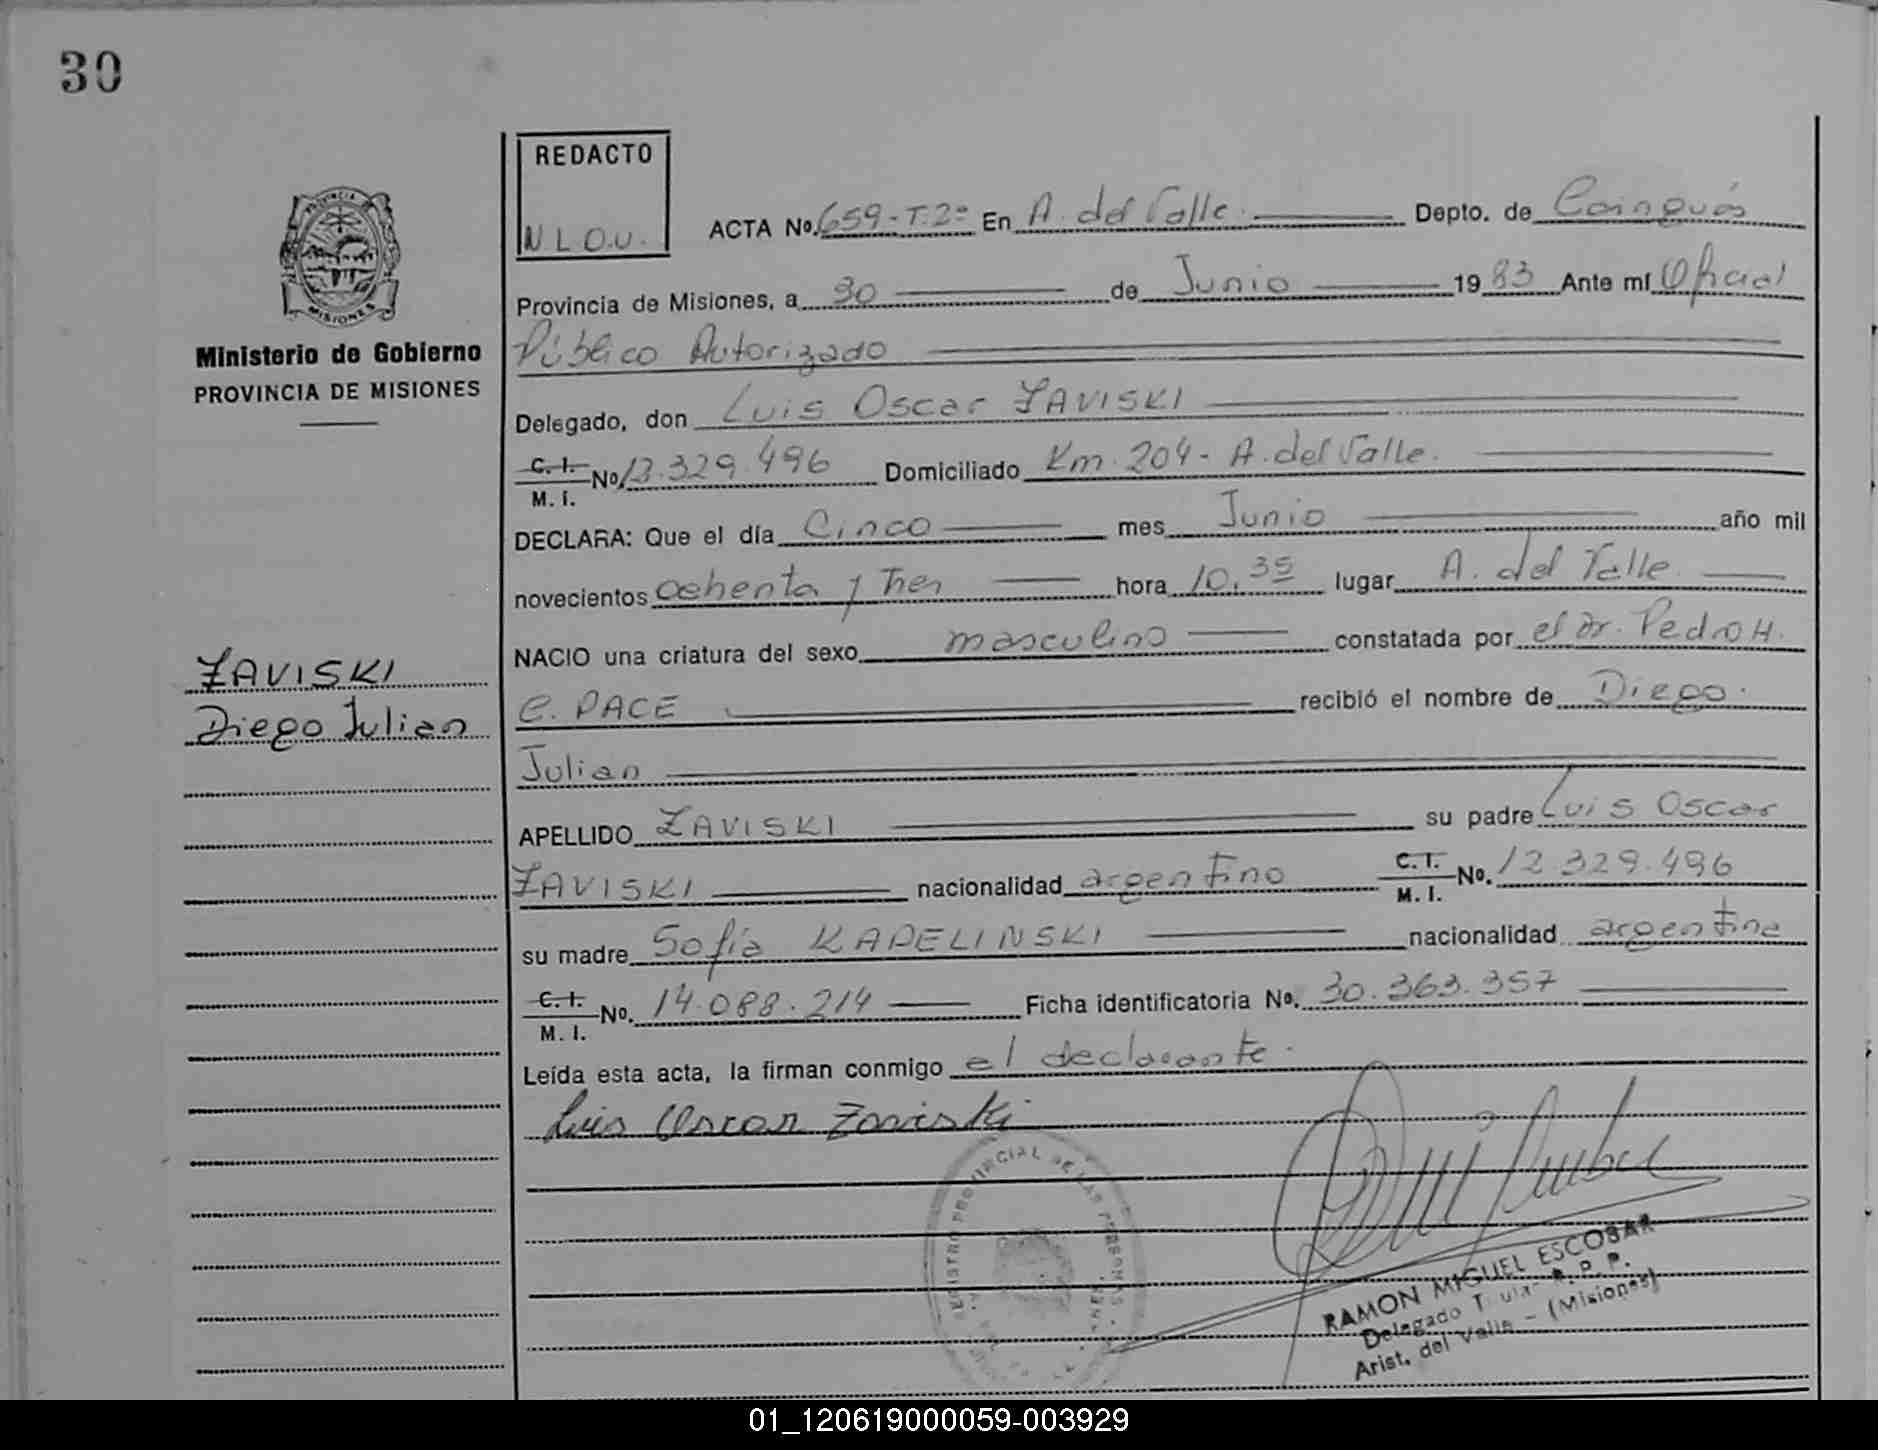 30
REDACTO
N L O.U.
PROVINCIA DE
MISIONES
Ministerio de Gobierno
PROVINCIA DE MISIONES
ZAVISKI
Diego Julian
ACTA No. 659-T.2º En A. del Valle. Depto. de Cainguás
Provincia de Misiones, a 30 de Junio 1983 Ante mí Oficial
Público Autorizado
Delegado, don Luis Oscar ZAVISKI
C. I. M. I. No 329.496 Domiciliado Km. 204 - A. del Valle.
DECLARA: Que el día Cinco mes Junio año mil
novecientos ochenta y Tres hora 10,35 lugar A. del Valle
NACIO una criatura del sexo masculino constatada por el Dr. Pedro H.
C. PACE recibió el nombre de Diego
Julian
APELLIDO ZAVISKI su padre Luis Oscar
ZAVISKI nacionalidad argentino C. I. M. I. No. 12.329.496
su madre Sofia KAPELINSKI nacionalidad argentina
C. I. M. I. No. 14.088.214 Ficha identificatoria No. 30.363.357
Leída esta acta, la firman conmigo el declarante.
Luis Oscar Zaviski
REGISTRO PROVINCIAL DE LAS PERSONAS
RAMON MIGUEL ESCOBAR
Delegado Titular R. P. P.
Arist. del Valle - (Misiones)
01_120619000059-003929